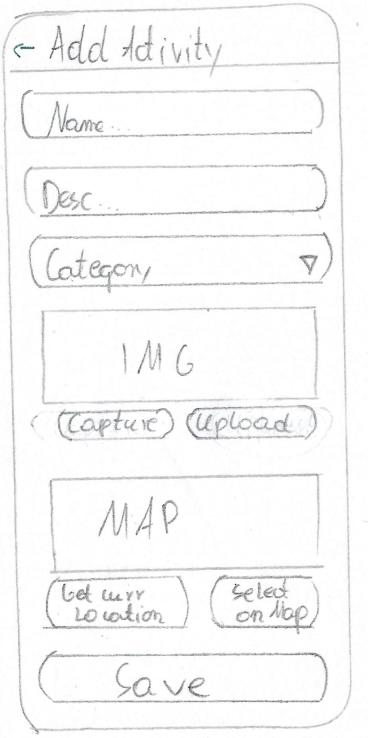 ← Add Activity
Name...
Desc...
Category
IMG
Capture Upload
MAP
Get curr
Location
Select
on Map
Save